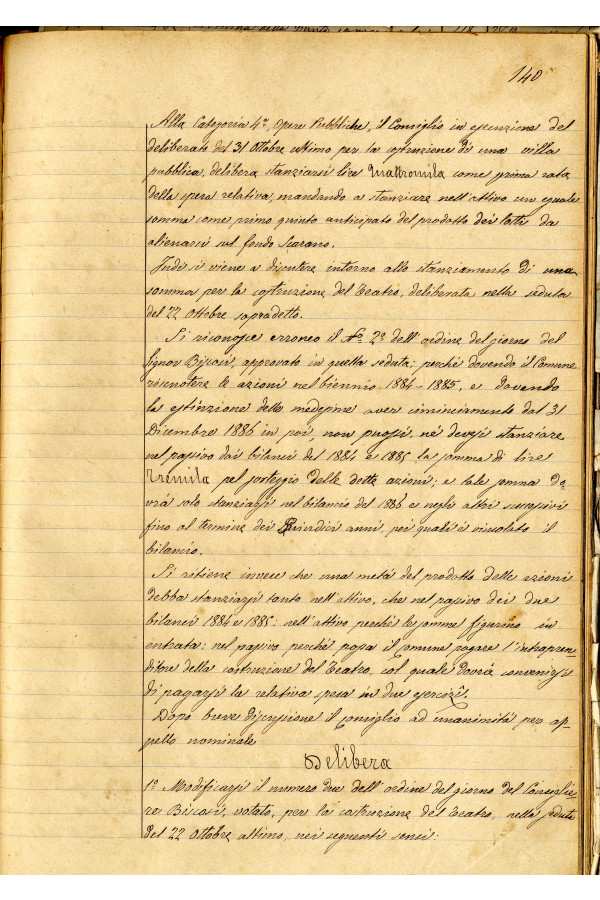 140
Alla Categoria 4ª, Opere Pubbliche, il Consiglio in esecuzione del
deliberato del 31 Ottobre ultimo per la costruzione di una villa
pubblica, delibera stanziarsi lire Quattromila come prima rata
della spesa relativa, mandando a stanziare nell'attivo un eguale
somma come primo quinto anticipato del prodotto dei lotti da
alienarsi sul fondo Scarano.
Indi si viene a discutere intorno allo stanziamento di una
somma per la costruzione del Teatro, deliberata nella seduta
del 22 Ottobre sopradetto.
Si riconosce erroneo il Nº 2º dell'ordine del giorno del
Signor Bicari, approvato in quella seduta; perchè dovendo il Comune
riscuotere le azioni nel biennio 1884-1885, e dovendo
la estinzione delle medesime aver cominciamento dal 31
Dicembre 1886 in poi, non puossi, nè devesi stanziare
nel passivo dei bilanci del 1884 e 1885 la somma di lire
Tremila pel sorteggio delle dette azioni; e tale somma do-
vrà solo stanziarsi nel bilancio del 1886 e negli altri successivi
fino al termine dei Quindici anni, pei quali è vincolato il
bilancio.
Si ritiene invece che una metà del prodotto delle azioni
debba stanziarsi tanto nell'attivo, che nel passivo dei due
bilanci 1884 e 1885: nell'attivo perchè le somme figurino in
entrata; nel passivo perchè possa il Comune pagare l'intrapren-
ditore della costruzione del Teatro, col quale dovrà convenirsi
di pagarsi la relativa spesa in due esercizî.
Dopo breve discussione il Consiglio ad unanimità per ap-
pello nominale
Delibera
1º Modificarsi il numero due dell'ordine del giorno del Consiglie-
re Bicari, votato, per la costruzione del Teatro, nella seduta
del 22 Ottobre ultimo, nei seguenti sensi: